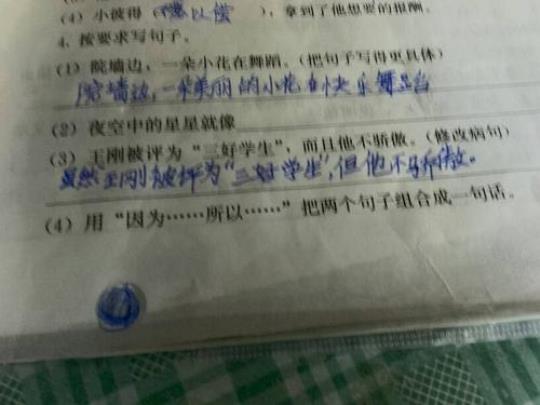 (4) 小彼得（ 以偿 ），拿到了他想要的报酬。
4. 按要求写句子。
(1) 院墙边，一朵小花在舞蹈。（把句子写得更具体）
院墙边，一朵美丽的小花在快乐舞蹈
(2) 夜空中的星星就像
(3) 王刚被评为“三好学生”，而且他不骄傲。（修改病句）
虽然王刚被评为“三好学生”，但他不骄傲。
(4) 用“因为……所以……”把两个句子组合成一句话。